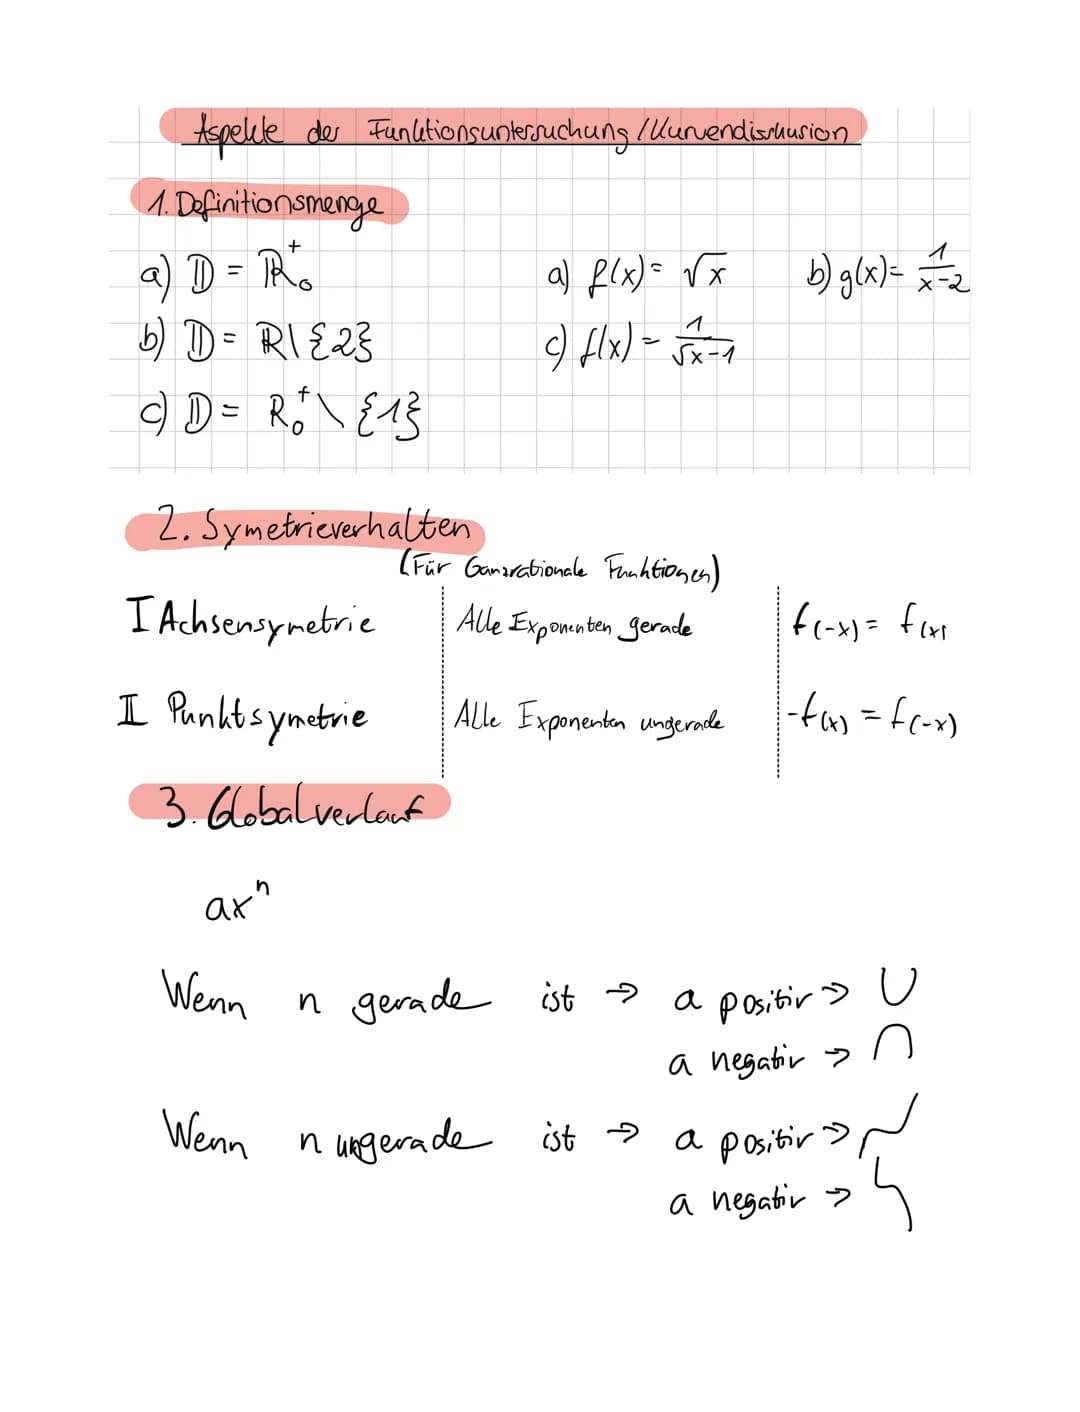 Aspekte der Funktionsuntersuchung / Kurvendiskusion
1. Definitionsmenge
a) 𝔻 = ℝ₀⁺ a) f(x) = √x b) g(x) = 1/(x-2)
b) 𝔻 = ℝ\{2} c) f(x) = 1/(√x-1)
c) 𝔻 = ℝ₀⁺ \ {1}
2. Symetrieverhalten
(Für Ganzrationale Funktionen)
I Achsensymetrie Alle Exponenten gerade f(-x) = f(x)
II Punktsymetrie Alle Exponenten ungerade -f(x) = f(-x)
3. Globalverlauf
axⁿ
Wenn n gerade ist → a positiv → ∪
a negativ → ∩
Wenn n ungerade ist → a positiv →
a negativ →